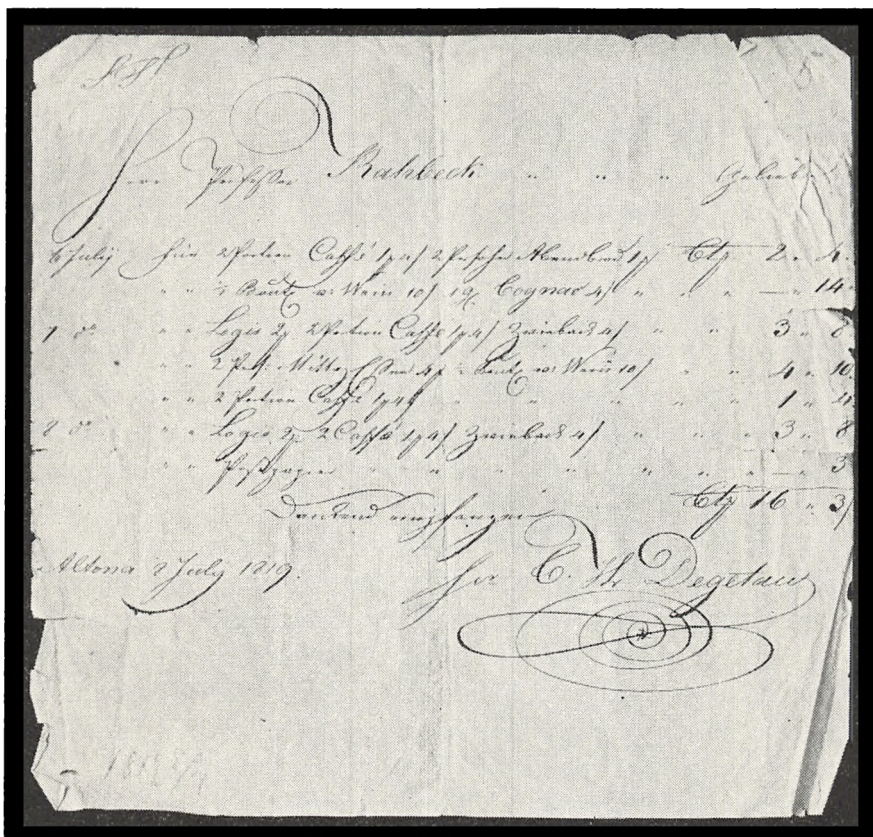 Herr Professor Rahbeck " " " Geliebe
6 July für 2 Portion Caffé 1 ₰ 4 ß 2 Persohn Abendbrod 1 ₰ Ct₰ 2 " 4
" " ½ Bout: w: Wein 10 ß 1 gl. Cognac 4 ß " " " — " 14
" " Logis 2 ₰ 2 Portion Caffe 1 ₰ 4 ß Zwieback 4 ß " " 3 " 8
" " 2 Pers: Mittag Essen 4 ₰ ½ Bout: w: Wein 10 ß " " 4 " 10
" " 2 Portion Caffé 1 ₰ 4 ß " " " " " 1 " 4
8 do " " Logis 2 ₰ 2 Caffé 1 ₰ 4 ß Zwieback 4 ß " " " 3 " 8
" " Postpapier " " " " " " " — " 3
Ct₰ 16 " 3 ß
Dankend empfangen
Altona 8 July 1819.
C. Degetau